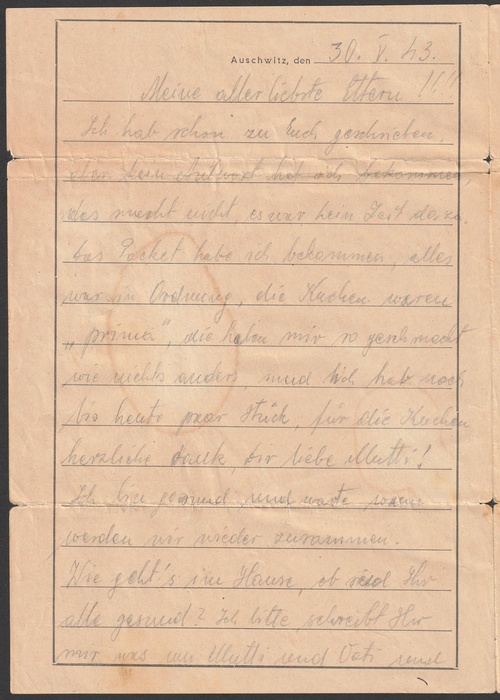 Auschwitz, den 30. V. 43.
Meine allerliebste Eltern !!!
Ich hab schon zu Euch geschrieben,
aber kein Antwort hab ich bekommen,
das macht nicht, es war kein Zeit dazu.
Das Packet habe ich bekommen, alles
war in Ordnung, die Kuchen waren
„prima“, die haben mir so geschmackt
wie nichts anders, und ich hab noch
bis heute paar Stück, für die Kuchen
herzliche Dank, Dir liebe Mutti!
Ich bin gesund, und warte wann
werden wir wieder zusammen.
Wie geht's im Hause, ob seid Ihr
alle gesund? Ich bitte, schreibt Ihr
mir was Mutti und Vati und